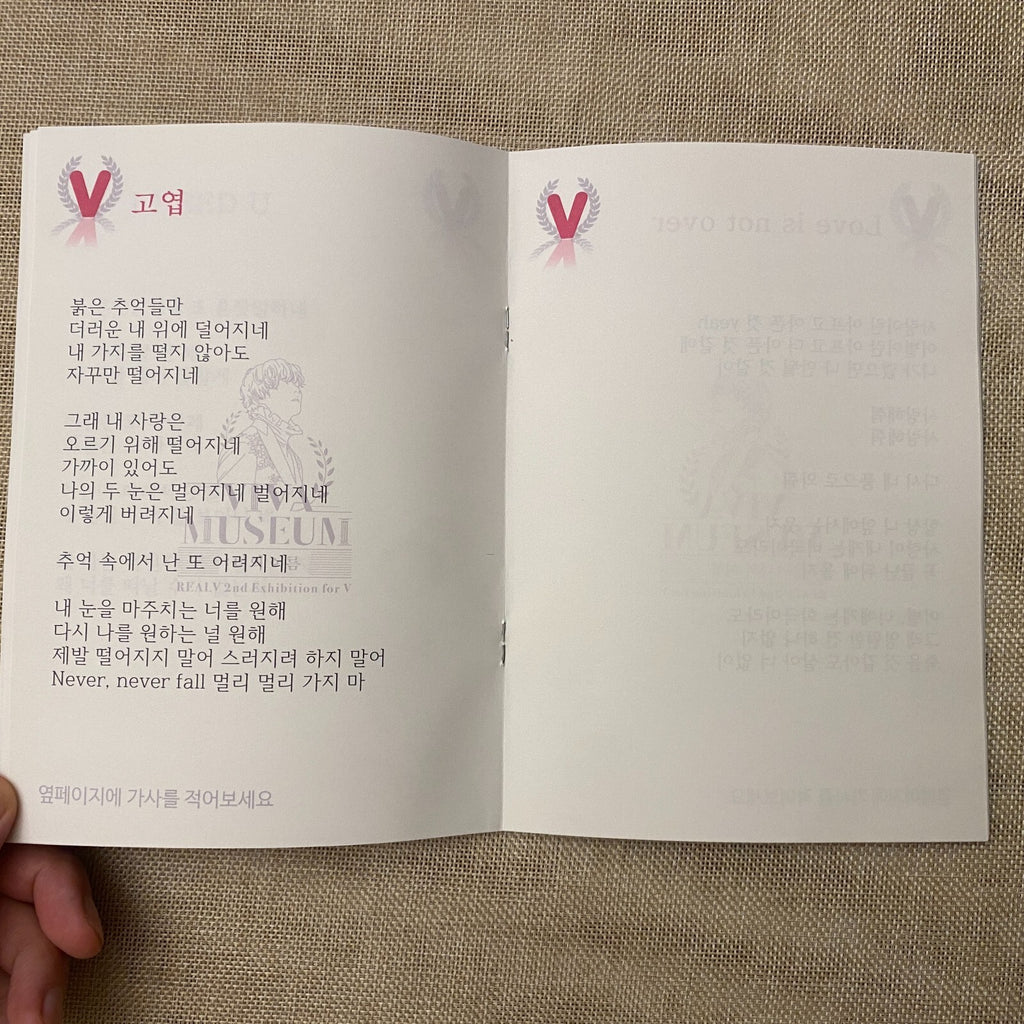 고엽
붉은 추억들만
더러운 내 위에 덜어지네
내 가지를 떨지 않아도
자꾸만 떨어지네
그래 내 사랑은
오르기 위해 떨어지네
가까이 있어도
나의 두 눈은 멀어지네 벌어지네
이렇게 버려지네
추억 속에서 난 또 어려지네
내 눈을 마주치는 너를 원해
다시 나를 원하는 널 원해
제발 떨어지지 말어 스러지려 하지 말어
Never, never fall 멀리 멀리 가지 마
VIVA
MUSEUM
REALV 2nd Exhibition for V
옆페이지에 가사를 적어보세요
Love is not over